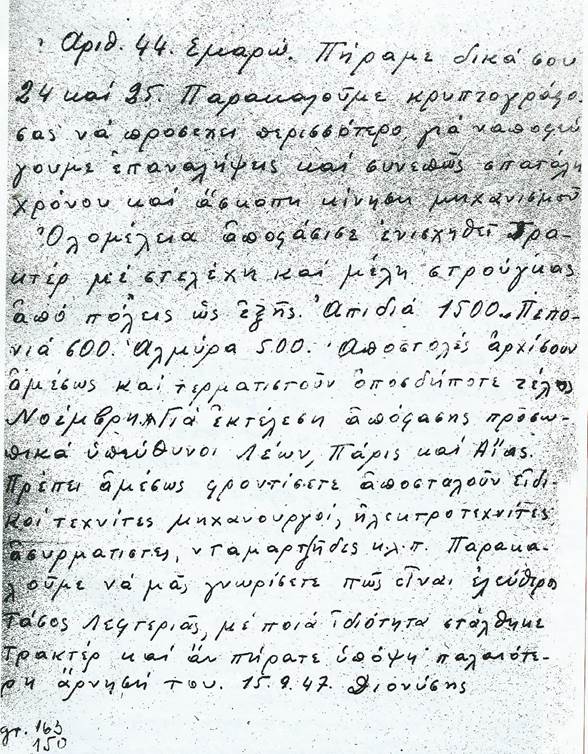 Αριθ. 44. Εμαρώ. Πήραμε δικά σου
24 καί 25. Παρακαλοῦμε κρυπτογράφο
σας νά προσέχει περισσότερο γιά ν'αποφεύ
γουμε ἐπαναλήψεις καί συνεπῶς σπατάλη
χρόνου καί ἄσκοπη κίνηση μηχανισμοῦ
Ὁλομέλεια ἀποφάσισε ἐνισχηθεῖ Τρα-
κτέρ μέ στελέχη καί μέλη στρούγκας
ἀπό πόλεις ὡς ἑξῆς. Ἀπιδιά 1500. Πεπο-
νιά 600. Ἀλμύρα 500. Ἀποστολές ἀρχίσουν
ἀμέσως καί τερματιστοῦν ὁποσδήποτε τέλος
Νοέμβρη. Γιά ἐκτέλεση ἀπόφασης προσω-
πικά ὑπεύθυνοι Λέων, Πάρις καί Αἴας.
Πρέπει ἀμέσως φροντίσετε ἀποσταλοῦν εἰδι-
κοί τεχνίτες μηχανουργοί, ἠλεκτροτεχνῖτες
ἀσυρματιστές, νταμαρτζῆδες κ.λ.π. Παρακα-
λοῦμε νά μᾶς γνωρίσετε πῶς εἶναι ἐλεύθερος
Τάσος Λεφτεριᾶς, μέ ποιά ἰδιότητα στάλθηκε
Τρακτέρ καί ἄν πήρατε ὑπόψη παλαιότε-
ρη ἄρνησή του. 15.9.47. Διονύσης
γρ. 163
150